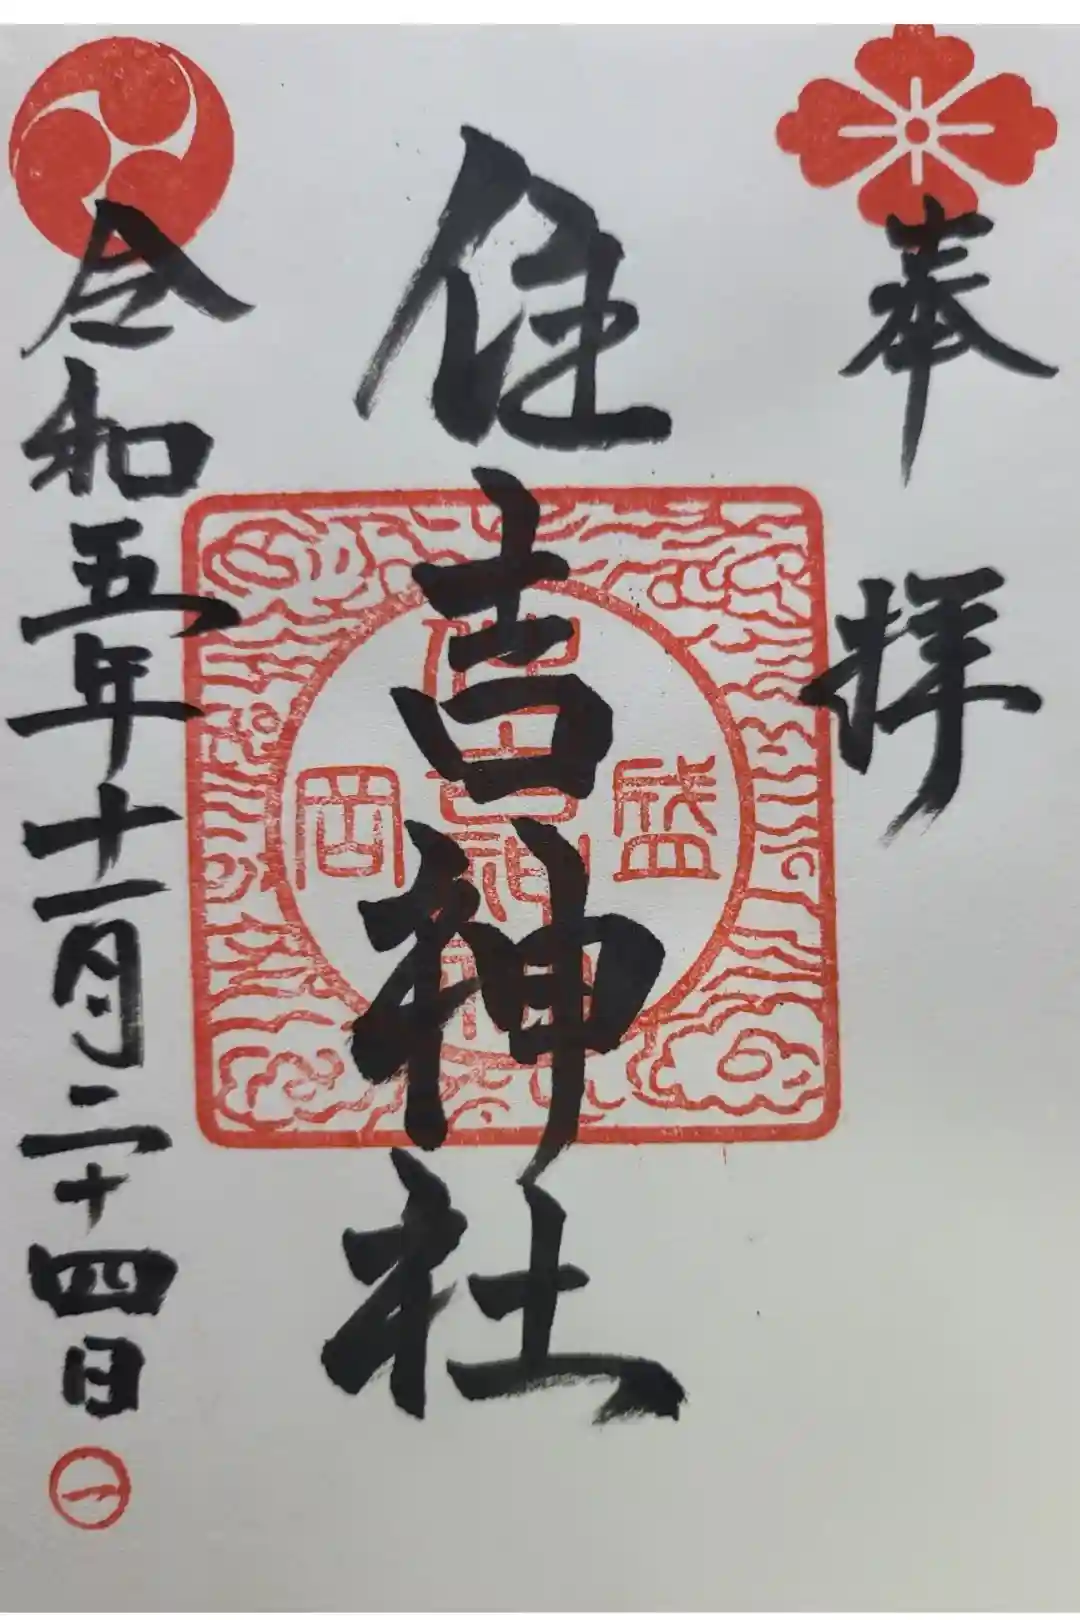 奉拝
住吉神社
盛
住吉神社
岡
令和五年十一月二十四日
一